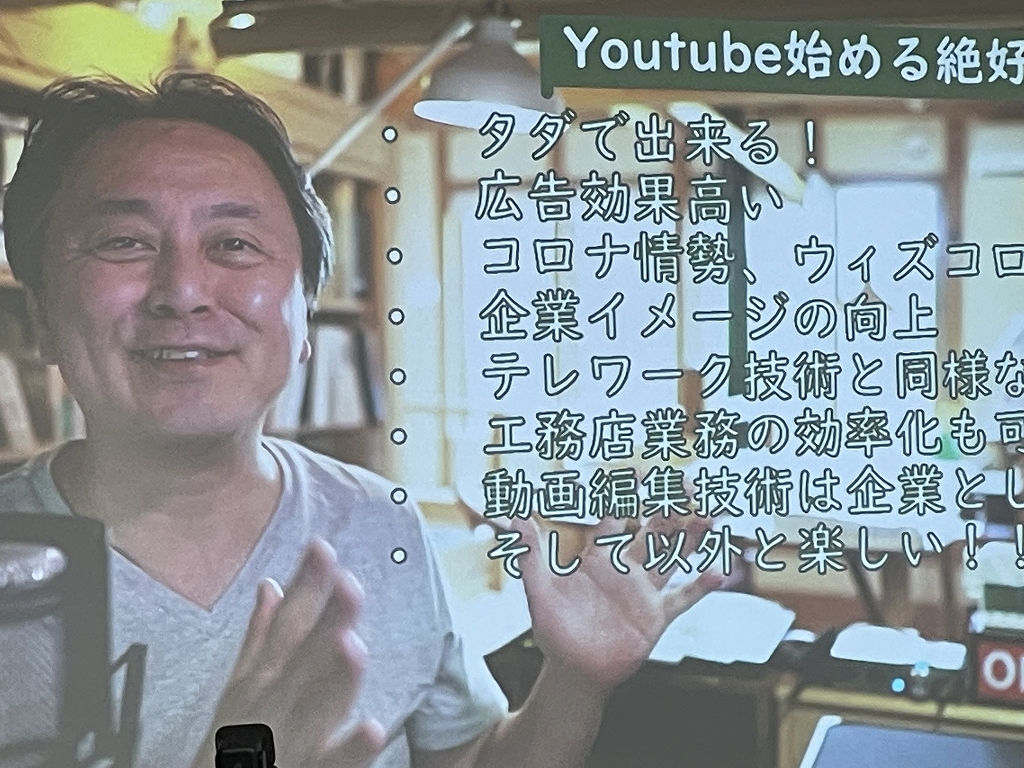 Youtube始める絶好
・ タダで出来る！
・ 広告効果高い
・ コロナ情勢、ウィズコロ
・ 企業イメージの向上
・ テレワーク技術と同様な
・ 工務店業務の効率化も可
・ 動画編集技術は企業とし
・ そして以外と楽しい！！